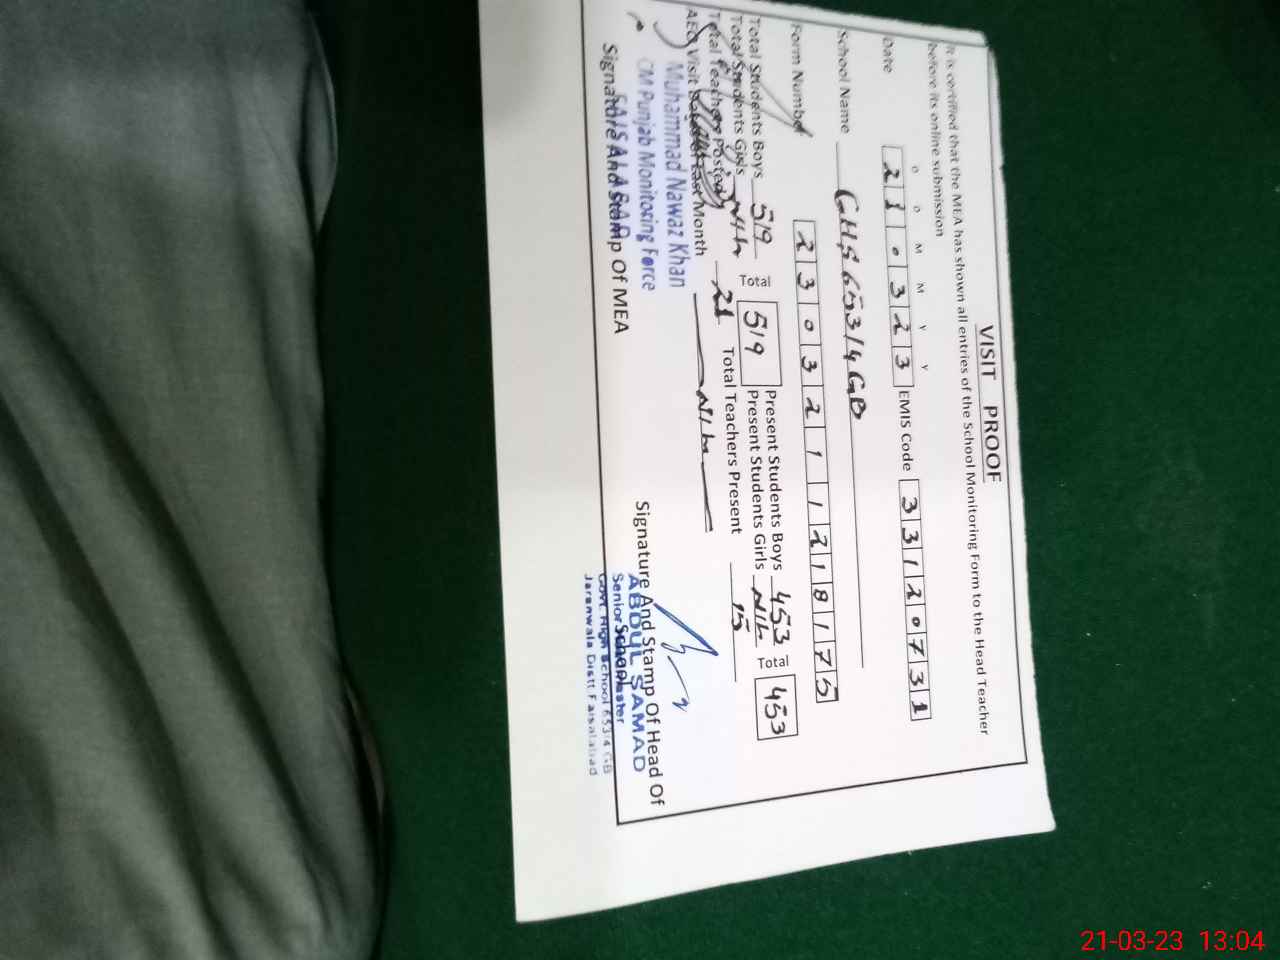 VISIT PROOF
It is certified that the MEA has shown all entries of the School Monitoring Form to the Head Teacher
before its online submission
D D M M Y Y
Date 210323 EMIS Code 33120731
School Name GHS 653/4 GB
Form Number 23032111218175
Total Students Boys 519 Total 519 Present Students Boys 453 Total 453
Total Students Girls NIL Present Students Girls NIL
Total Teachers Posted 21 Total Teachers Present 15
AEO Visit Last Month NIL
Muhammad Nawaz Khan
CM Punjab Monitoring Force
FAISALABAD
Signature And Stamp Of MEA
Signature And Stamp Of Head Of
School
ABDUL SAMAD
Senior Headmaster
Govt. High School 653/4 GB
Jaranwala Distt. Faisalabad
21-03-23 13:04